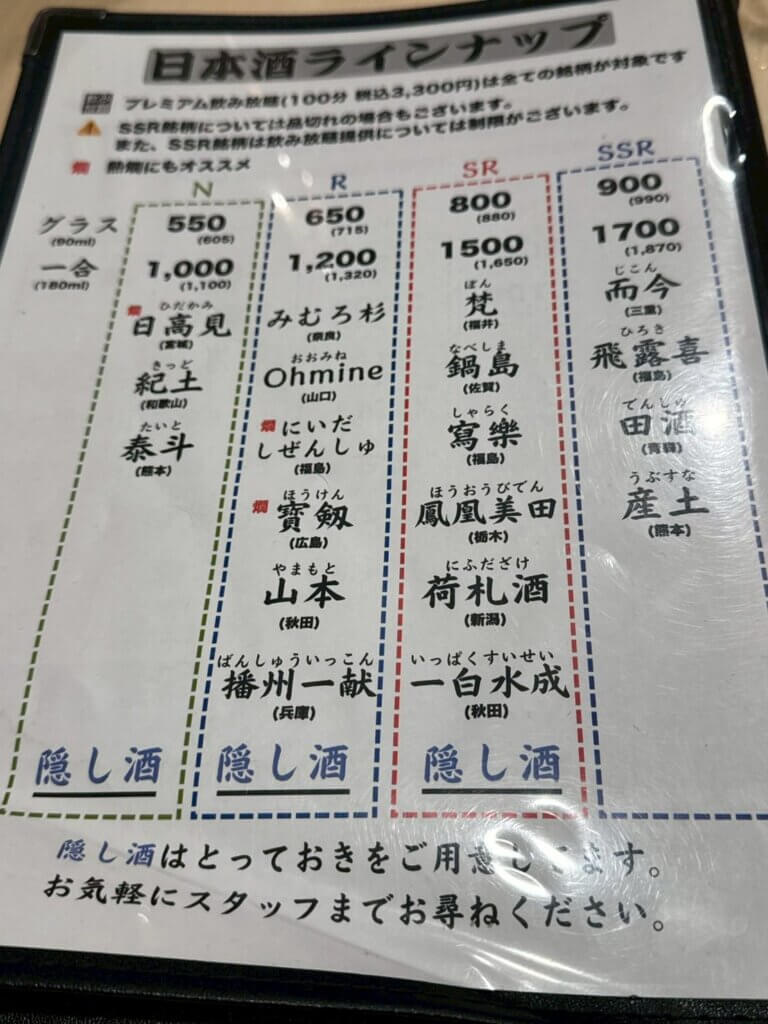 日本酒ラインナップ
プレミアム飲み放題(100分 税込3,300円)は全ての銘柄が対象です
SSR銘柄については品切れの場合もございます。
また、SSR銘柄は飲み放題提供については制限がございます。
燗 熱燗にもオススメ
N R SR SSR
グラス 550 650 800 900
(90ml) (605) (715) (880) (990)
一合 1,000 1,200 1500 1700
(180ml) (1,100) (1,320) (1,650) (1,870)
燗
ひだかみ
日高見
(宮城)
きっど
紀土
(和歌山)
たいと
泰斗
(熊本)
隠し酒
みむろ杉
(奈良)
おおみね
Ohmine
(山口)
燗 にいだ
しぜんしゅ
(福島)
ほうけん
燗 寶剱
(広島)
やまもと
山本
(秋田)
ばんしゅういっこん
播州一献
(兵庫)
隠し酒
ぼん
梵
(福井)
なべしま
鍋島
(佐賀)
しゃらく
寫樂
(福島)
ほうおうびでん
鳳凰美田
(栃木)
にふだざけ
荷札酒
(新潟)
いっぱくすいせい
一白水成
(秋田)
隠し酒
じこん
而今
(三重)
ひろき
飛露喜
(福島)
でんしゅ
田酒
(青森)
うぶすな
産土
(熊本)
隠し酒はとっておきをご用意してます。
お気軽にスタッフまでお尋ねください。